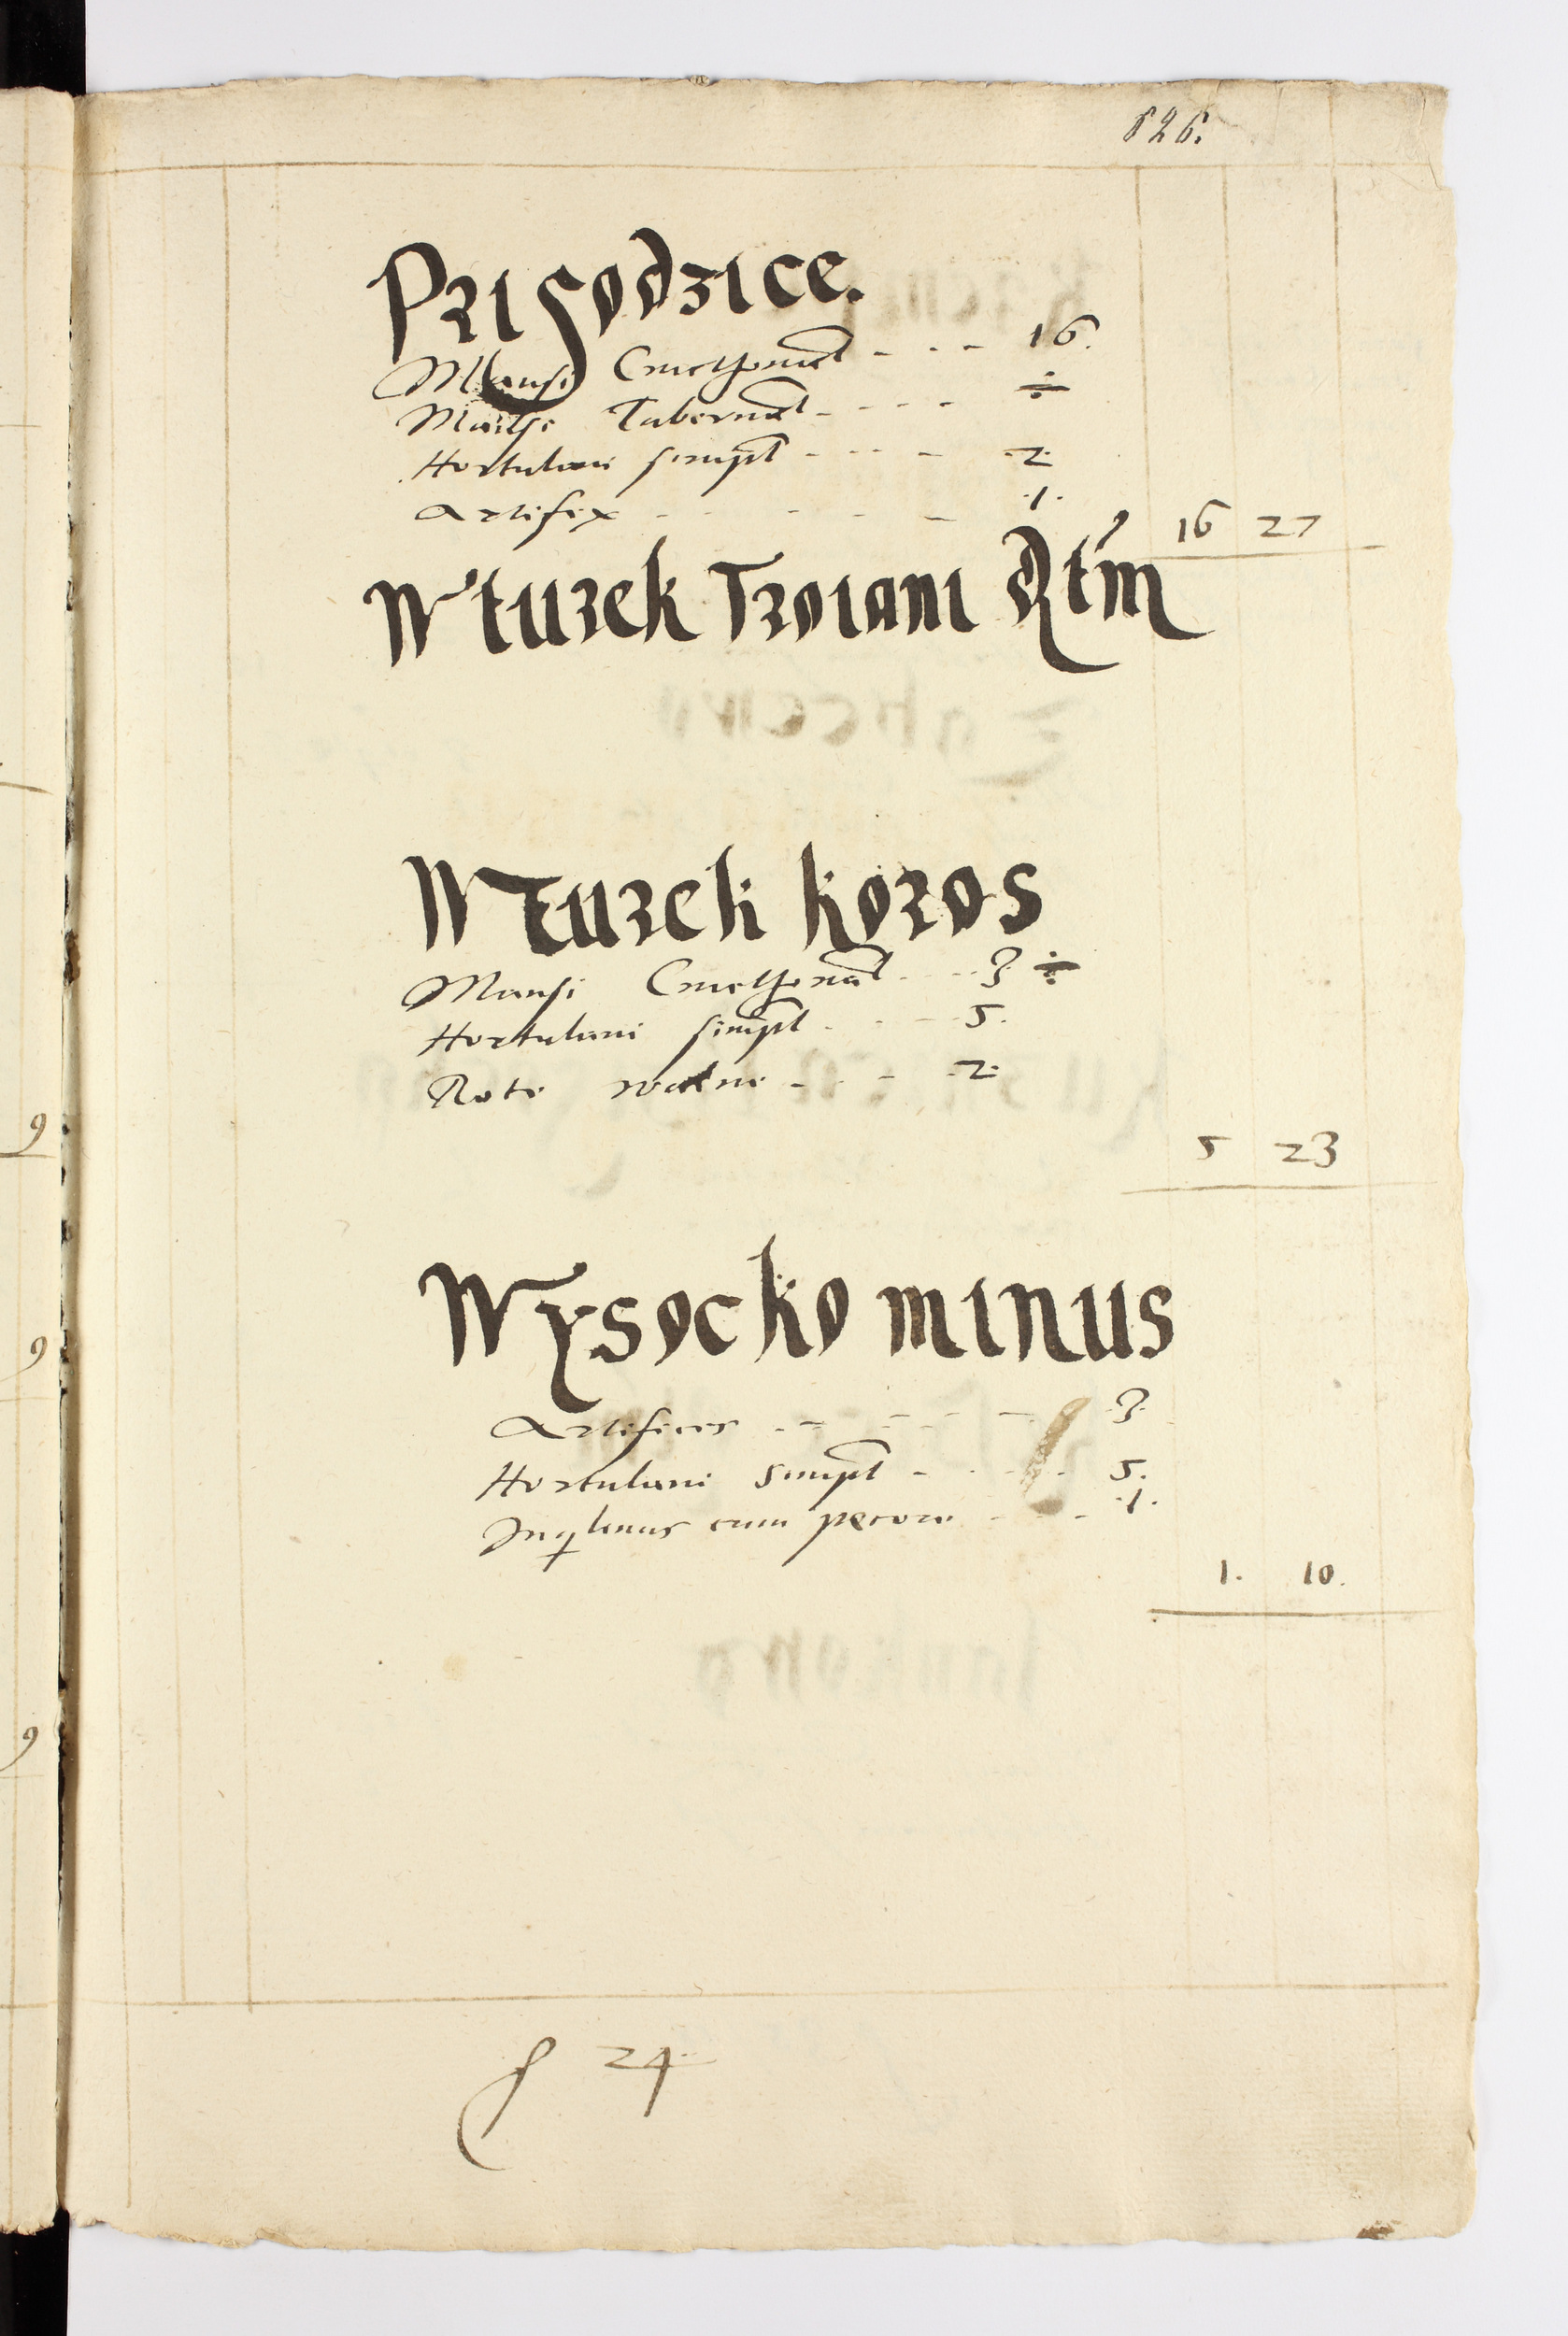 826.
Prigodzice.
Mansi Cmethonal - - - 16.
Mansi Tabernal - - - - ÷
Hortulani simpl - - - - 2.
Artifex - - - - .1.
16 27
Wturek Troiani
Wturek koros
Mansi Cmethonal - - - 3 ÷
Hortulani simpl - - - 5.
Rote walne - - - 2.
5 23
Wysocko minus
Artifices - - - - 3.
Hortulani simpl - - - - 5.
Inqlinus cum pecore - - .1.
1. 10.
f 24
9
9
9